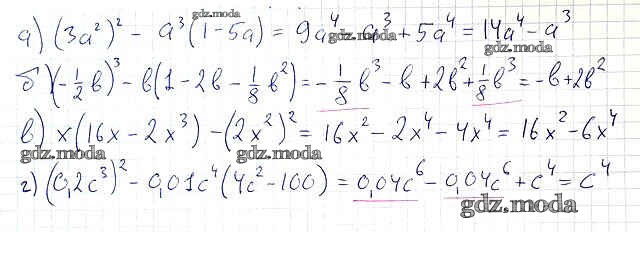 gdz.moda
а) (3a²)² - a³(1-5a) = 9a⁴ - a³ + 5a⁴ = 14a⁴ - a³
gdz.moda
gdz.moda
б) (-1/2 b)³ - b(1 - 2b - 1/8 b²) = -1/8 b³ - b + 2b² + 1/8 b³ = -b + 2b²
в) x(16x - 2x³) - (2x²)² = 16x² - 2x⁴ - 4x⁴ = 16x² - 6x⁴
gdz.moda gdz.moda
г) (0,2c³)² - 0,01c⁴(4c² - 100) = 0,04c⁶ - 0,04c⁶ + c⁴ = c⁴
gdz.moda